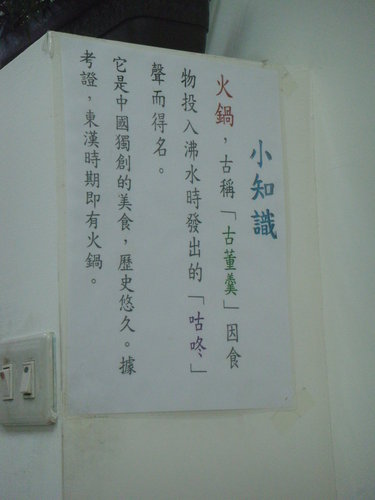 小知識
火鍋，古稱「古董羹」因食
物投入沸水時發出的「咕咚」
聲而得名。
它是中國獨創的美食，歷史悠久。據
考證，東漢時期即有火鍋。